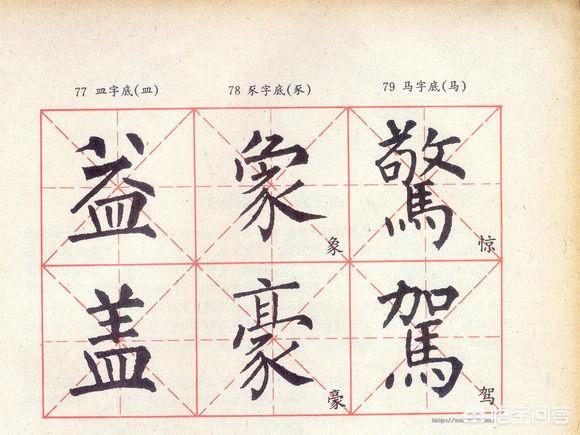 77 皿字底(皿) 78 豕字底(豕) 79 马字底(马)
益 象 象 驚 惊
盖 豪 豪 駕 驾
悟空问答